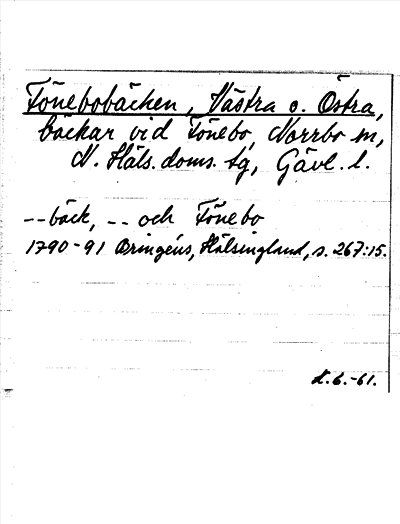 Fönebobäcken, Västra o. Östra,
bäckar vid Fönebo, Norrbo sn,
N. Häls. doms. tg, Gävl. l.
--bäck, -- och Fönebo
1790-91 Bringéus, Hälsingland, s. 267:15.